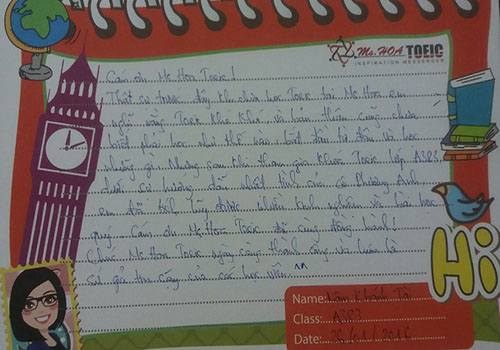 Ms. HOA TOEIC
INSPIRATION MESSENGER
Cám ơn Ms Hoa Toeic!
Thật sự trước đây khi chưa học Toeic tại Ms Hoa em
nghĩ rằng Toeic khó khăn và bản thân cũng chưa
biết phải học như thế nào, biết bắt đầu từ đâu và học
những gì. Nhưng sau khi tham gia khóa Toeic lớp A3B3
dưới sự hướng dẫn nhiệt tình của cô Phương Anh
em đã tích lũy được nhiều kinh nghiệm và bài học
quý. Cám ơn Ms Hoa Toeic đã cùng đồng hành!
Chúc Ms Hoa Toeic ngày càng thành công và luôn là
sứ giả tin cậy của các học viên. ^^
Hi
Name: Lâm Khánh
Class: A3B3
Date: /01/2016